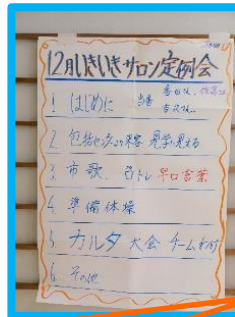 12月いきいきサロン定例会
1. はじめに 当番
2. 包括センターより来客 見学に見える
3. 市歌、口トレ 早口言葉
4. 準備体操
5. カルタ大会 チーム分け
6. その他